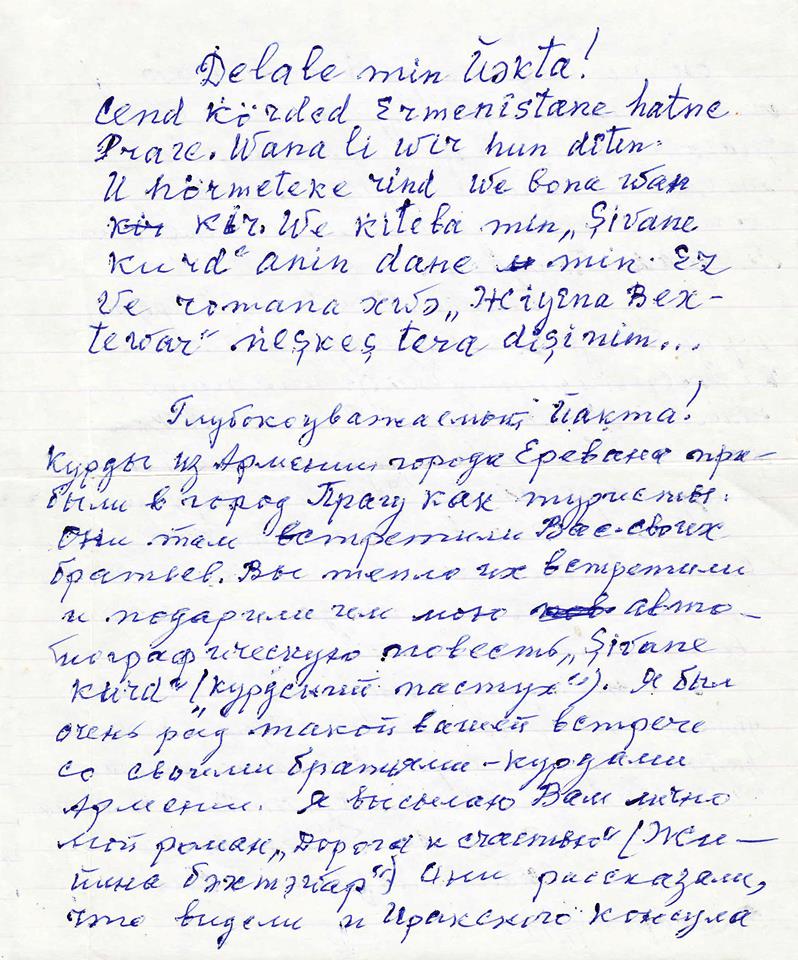 Delale min Йəkta!
Cend körded Ermenistane hatne
Prare. Wana li wir hun diten.
U hörmeteke rind we bona wan
kir. We kiteba min „Şivane
kurd“ anin dane min. Ez
Ve romana xwə „Жiyina Bex-
tewar“ peşkeş tera dişinim...
Глубокоуважаемый Йакта!
Курды из Армении города Еревана при-
были в город Прагу как туристы.
Они там встретили Вас-своих
братьев. Вы тепло их встретили
и подарили им мою авто-
биографическую повесть „Şivane
kurd“ („курдский пастух“). Я был
очень рад такой вашей встрече
со своими братьями-курдами
Армении. Я высылаю Вам лично
мой роман „Дорога к счастью“ (Жи-
йина бəхтəwар“) Они рассказали,
что видели и Иракского консула